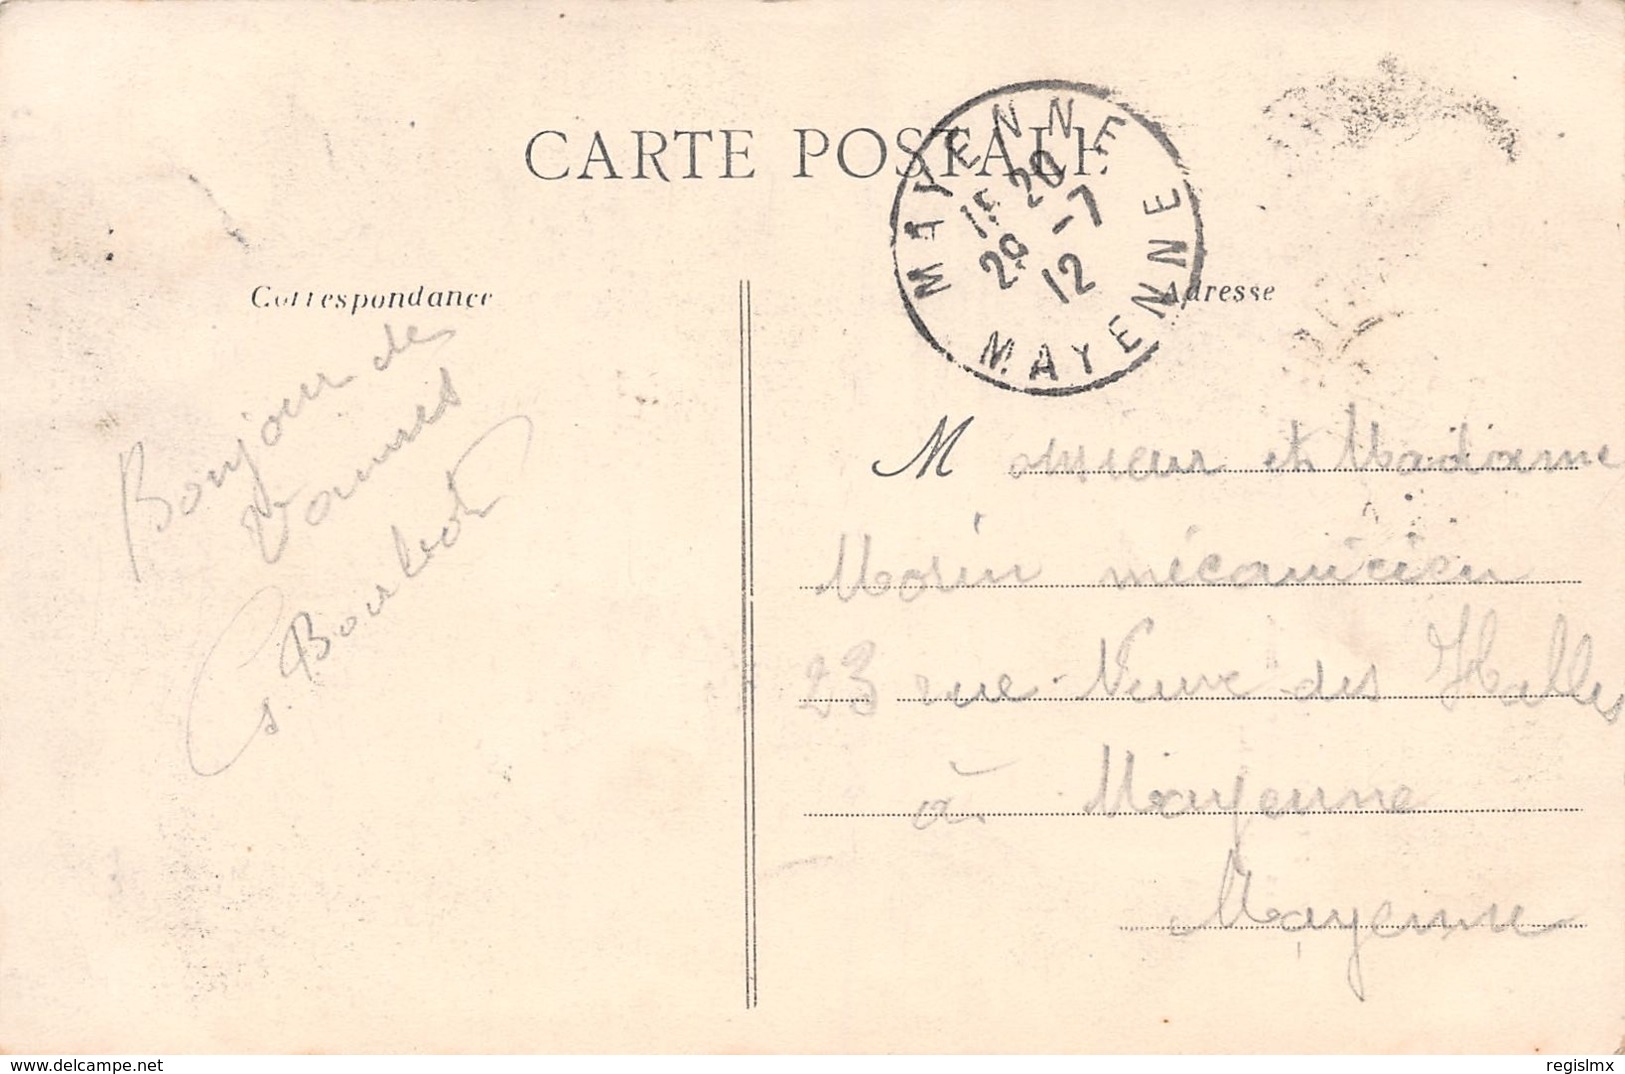 CARTE POSTALE
MAYENNE
15 20
29 -7
12
MAYENNE
Correspondance
Adresse
Bonjour de
Vannes
Bourbot
Monsieur et Madame
Morin mécanicien
23 rue Neuve des Halles
à Mayenne
Mayenne
delcampe.net
regislmx